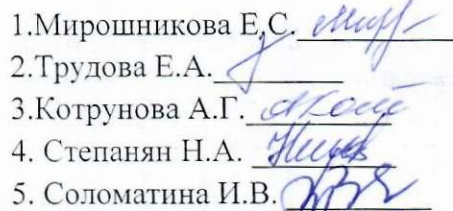 1.Мирошникова Е.С.
2.Трудова Е.А.
3.Котрунова А.Г.
4. Степанян Н.А.
5. Соломатина И.В.